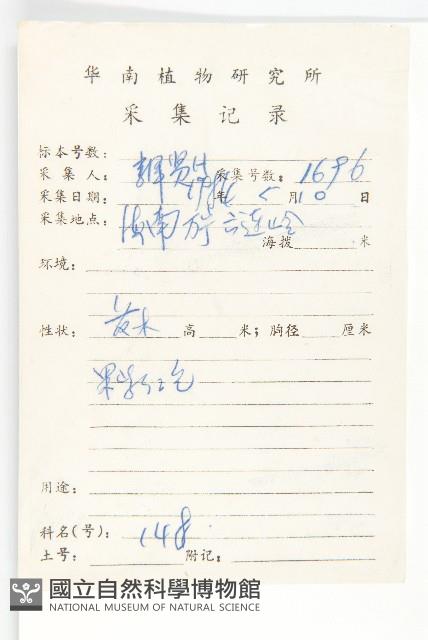 华南植物研究所
采集记录
标本号数:
采集人: 采集号数: 1696
采集日期: 年 5 月 10 日
采集地点: 海南 六连岭
海拨 米
环境:
性状: 高 米; 胸径 厘米
果 红色
用途:
科名(号): 148
土号: 附记:
國立自然科學博物館
NATIONAL MUSEUM OF NATURAL SCIENCE